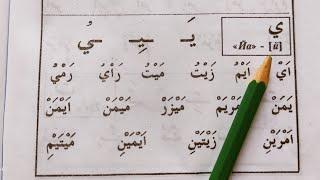 ي
يَـ ـيِـ ـيُ
«Йа» - [й]
اَيْ اَيْمُ زَيْتُ مَيْتُ رَأْيُ رَمْيُ
يَمَنْ مَرْيَمْ مَيْزَرْ مَيْمَنْ اَيْمَنْ
اَمْرَيْنِ زَيْتَيْنِ اَيْمَيْنِ مَيْتَيْنِ